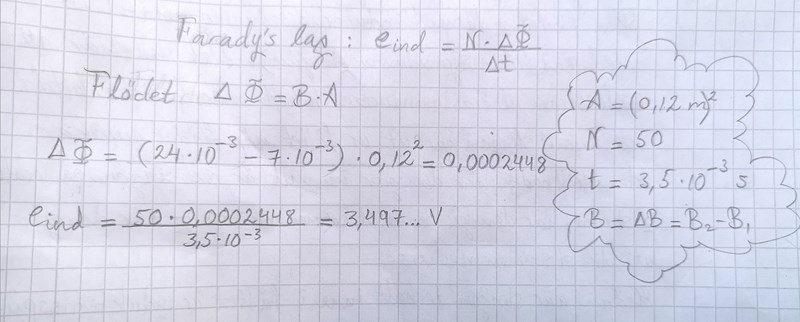 Farady's lag : eind = N · ΔΦ / Δt
Flödet ΔΦ = B·A
ΔΦ = (24·10⁻³ − 7·10⁻³) · 0,12² = 0,0002448
eind = 50 · 0,0002448 / 3,5·10⁻³ = 3,497... V
A = (0,12 m)²
N = 50
t = 3,5·10⁻³ s
B = ΔB = B₂ − B₁